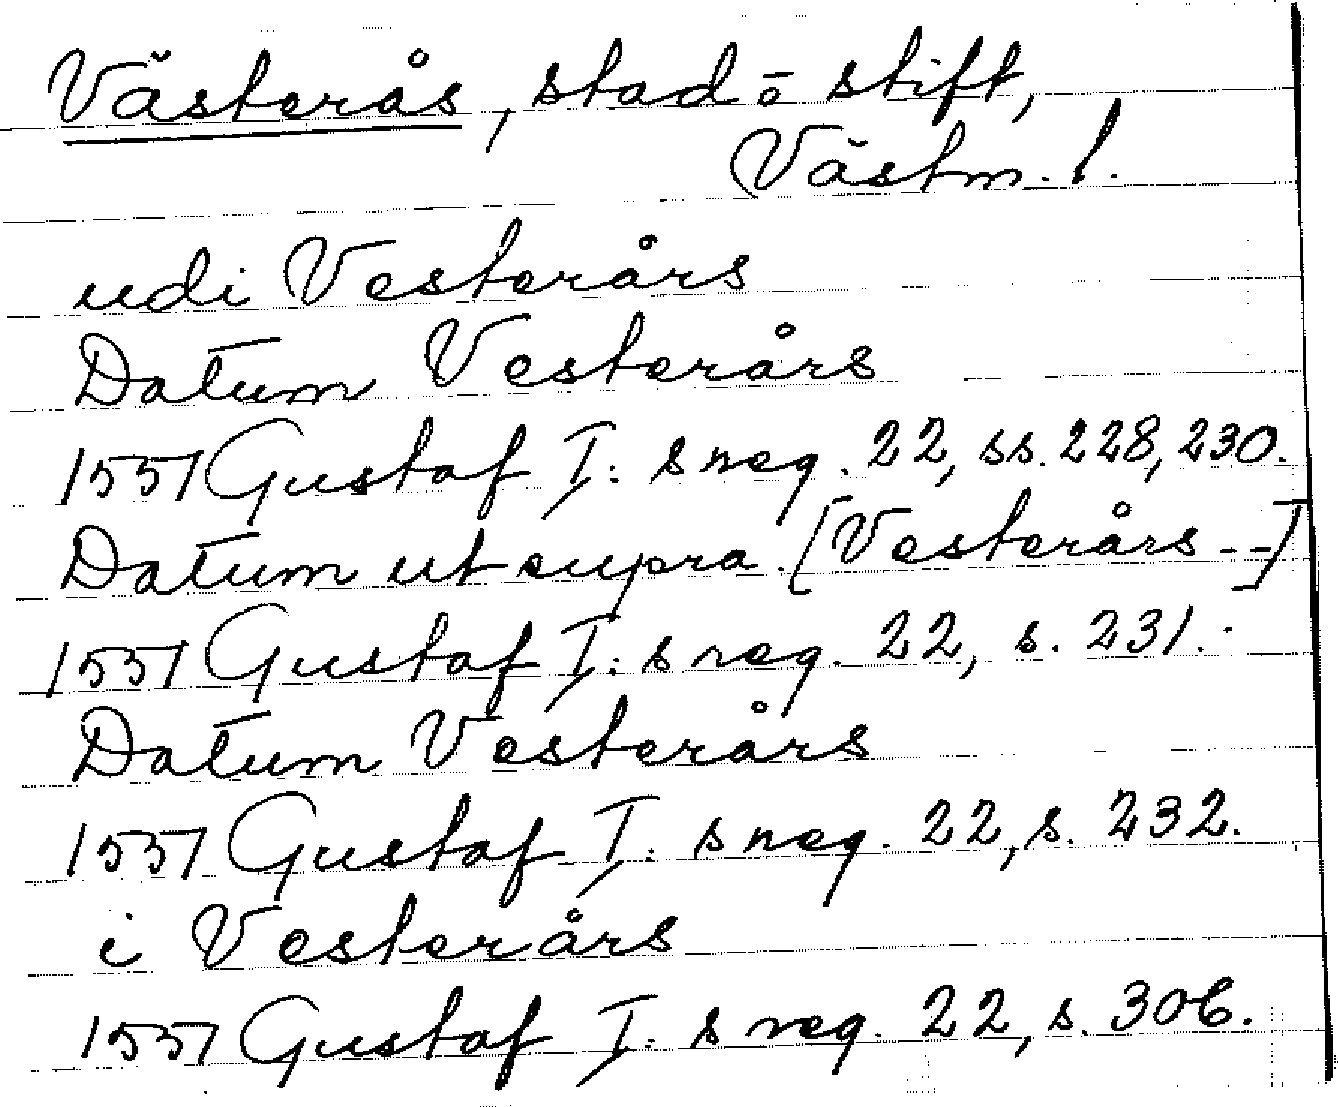 Västerås, stad o stift,
Västm. l.
udi Vesterårs
Datum Vesterårs
1551 Gustaf I:s reg. 22, ss. 228, 230.
Datum ut supra [Vesterårs --]
1551 Gustaf I:s reg. 22, s. 231.
Datum Vesterårs
1551 Gustaf I:s reg. 22, s. 232.
i Vesterårs
1551 Gustaf I:s reg. 22, s. 306.